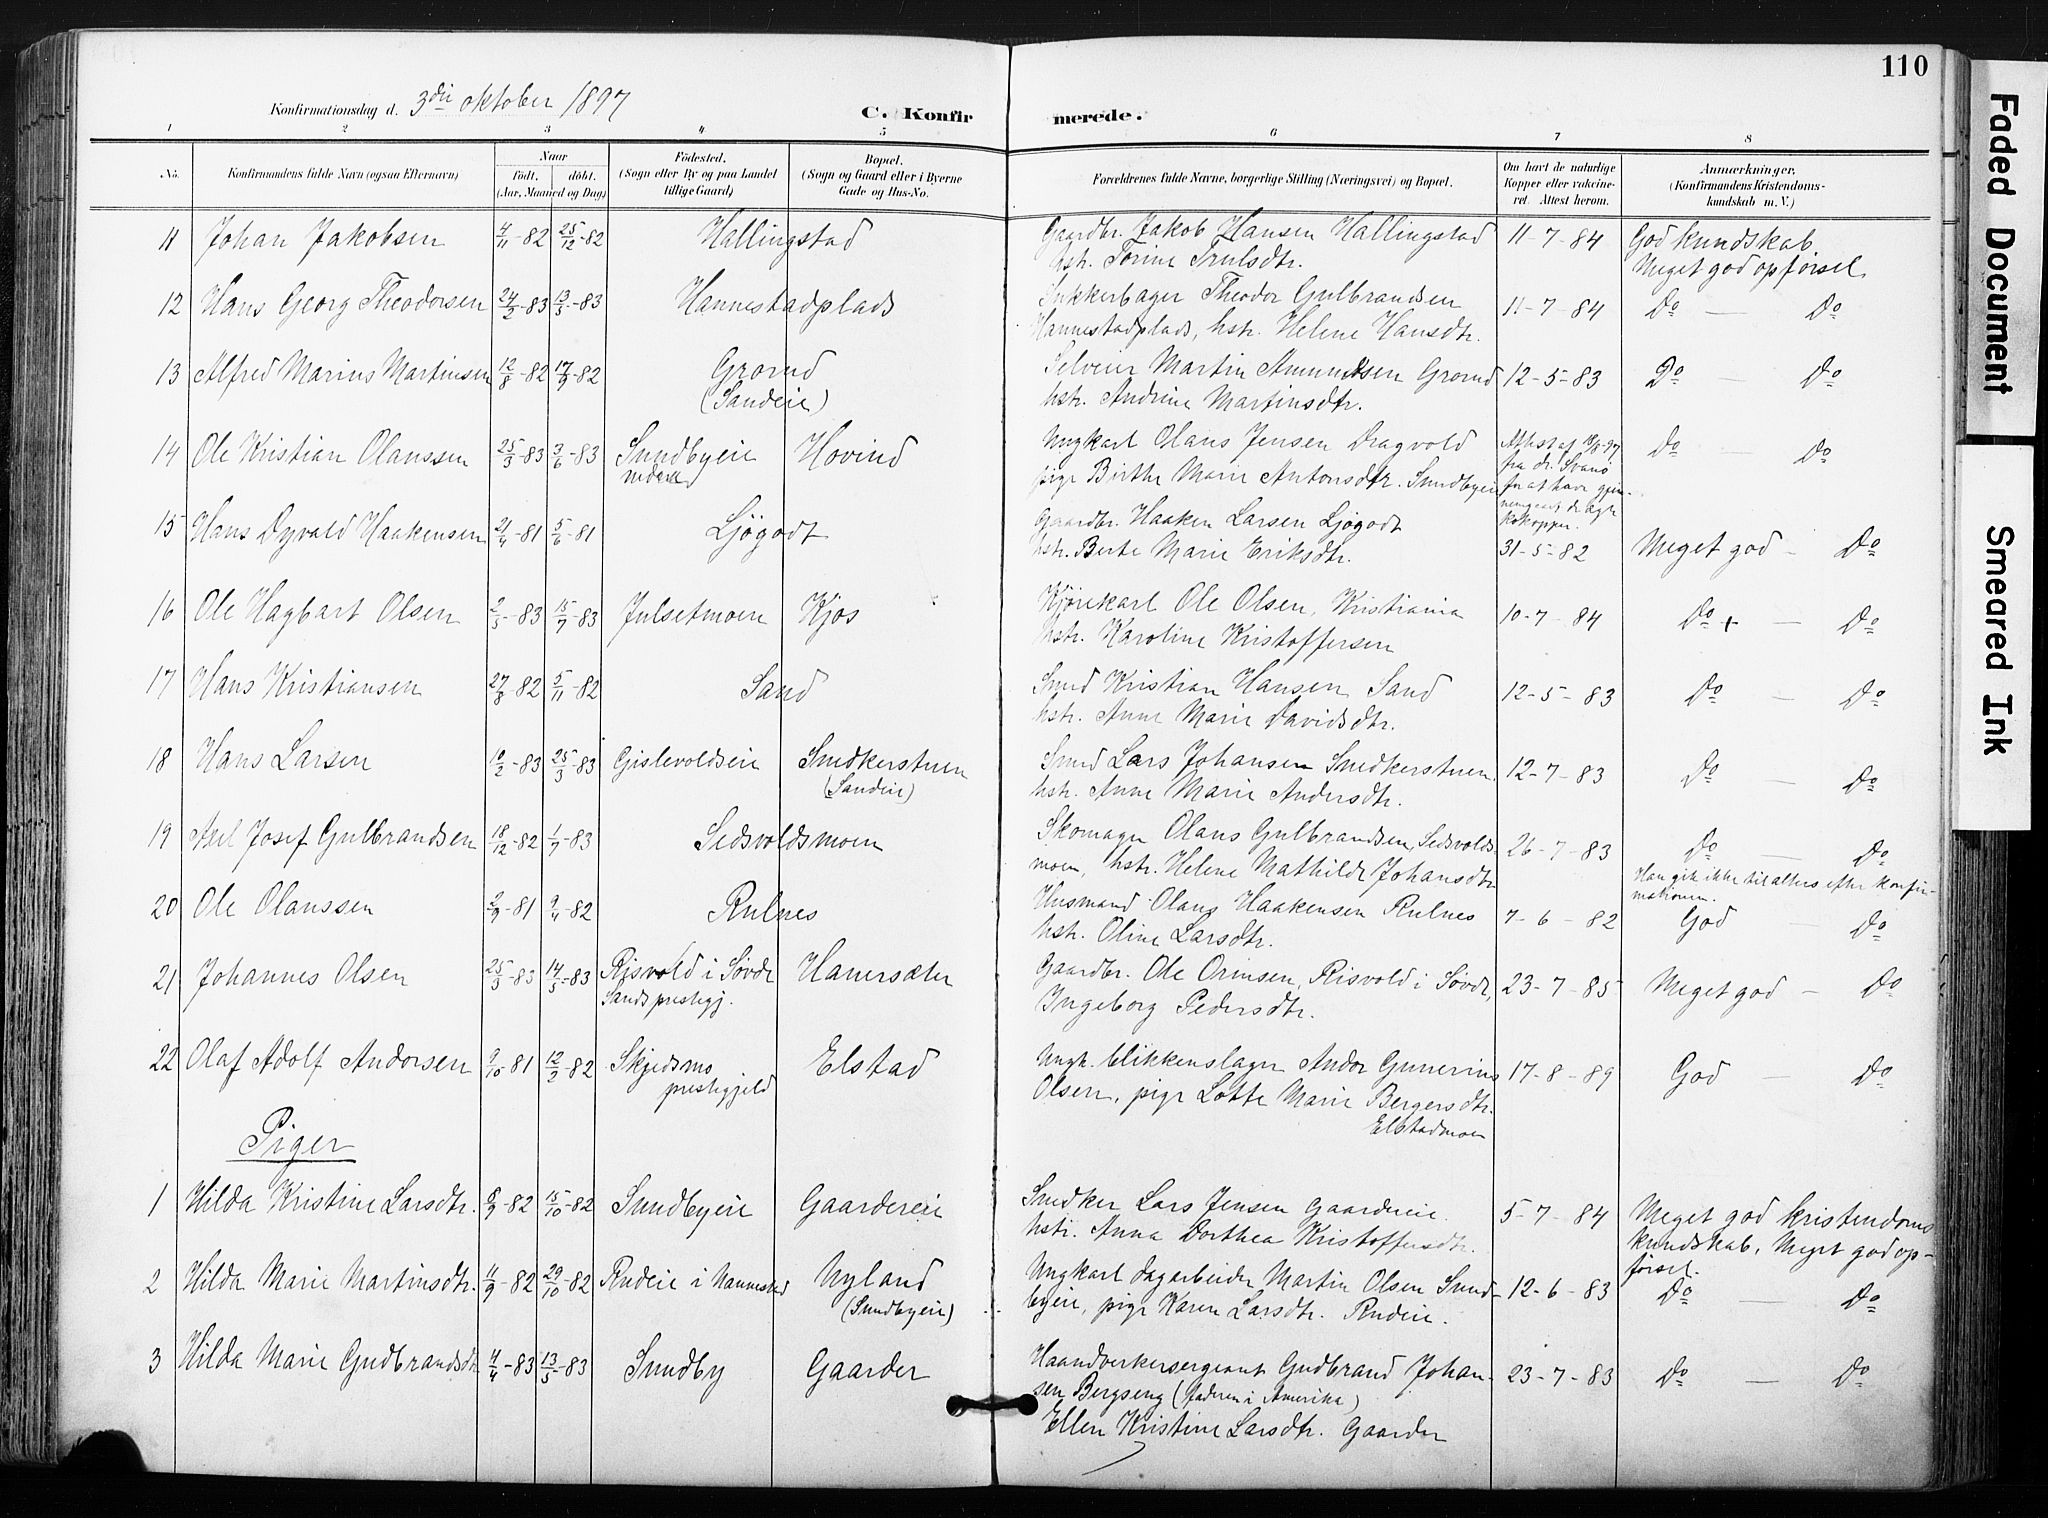 110
Konfirmationsdag d. 3die oktober 1897
C. Konfirmerede.
1 2 3 4 5 6 7 8
No.
Konfirmandens fulde Navn (ogsaa Efternavn)
Naar
født. døbt.
(Aar, Maaned og Dag)
Fødested.
(Sogn eller By og paa Landet
tillige Gaard)
Bopæl.
(Sogn og Gaard eller i Byerne
Gade og Hus-No.
Forældrenes fulde Navne, borgerlige Stilling (Næringsvei) og Bopæl.
Om havt de naturlige
Kopper eller vakcine-
ret. Attest herom.
Anmærkninger.
(Konfirmandens Kristendoms-
kundskab m. V.)
11 Johan Jakobsen 4/11-82 25/12-82 Hallingstad Gaardbr. Jakob Hansen Hallingstad 11-7-84 God kundskab
hstr. Torine Trulsdtr. Meget god opførsel
12 Hans Georg Theodorsen 24/2-83 13/5-83 Hannestadplads Sukkerbager Theodor Gulbrandsen 11-7-84 Do — Do
Hannestadplads, hstr. Helene Hansdtr.
13 Alfred Marius Martinsen 12/8-82 17/9-82 Grorud Selveier Martin Amundsen Grorud 12-5-83 Do — Do
(Sandeie) hstr. Andrine Martinsdtr.
14 Ole Kristian Olanssen 25/3-83 3/6-83 Sundbyeie Hovind Ungkarl Olans Jensen Dragvold Do — Do
nedre pige Birthe Marie Antonsdtr. Sundbyeie
fra dr. Svanø
for at have gjen-
nemgaaet de ægte
kokopper.
15 Hans Dyvald Haakensen 21/4-81 5/6-81 Ljøgodt Gaardbr. Haaken Larsen Ljøgodt
hstr. Berte Marie Eriksdtr. 31-5-82 Meget god — Do
16 Ole Hagbart Olsen 2/5-83 15/7-83 Julsetmoen Kjos Kjørekarl Ole Olsen, Kristiania 10-7-84 Do + — Do
hstr. Karoline Kristoffersen
17 Hans Kristiansen 27/8-82 5/11-82 Sand Smed Kristian Hansen Sand 12-5-83 Do — Do
hstr. Anne Marie Davidsdtr.
18 Hans Larsen 19/2-83 25/3-83 Gislevoldseie Snedkerstuen Smed Lars Johansen Snedkerstuen 12-7-83 Do — Do
(Sandeie) hstr. Anne Marie Andersdtr.
19 Axel Josef Gulbrandsen 18/12-82 1/7-83 Sedsvoldsmoen Skomager Olans Gulbrandsen, Sedsvolds- 26-7-83 Do — Do
moen, hstr. Helene Mathilde Johansdtr. Han gik ikke til alters efter konfir-
mationen.
20 Ole Olanssen 2/9-81 9/4-82 Rulnes Husmand Olans Haakensen Rulnes 7-6-82 God — Do
hstr. Oline Larsdtr.
21 Johannes Olsen 25/3-83 14/5-83 Risvold i Søvde Hanersæter Gaardbr. Ole Orinsen, Risvold i Søvde, 23-7-85 Meget god — Do
Sands prestegj. Ingeborg Pedersdtr.
22 Olaf Adolf Andorsen 9/10-81 12/2-82 Skjedsmo Elstad Ungk. blikkenslager Andor Gunerius 17-8-89 God — Do
prestegjeld Olsen, pige Lotte Marie Bergersdtr.
Elstadmoen
Piger
1 Hilda Kristine Larsdtr. 8/9-82 15/10-82 Sundbyeie Gaardereie Snedker Lars Jensen Gaardereie 5-7-84 Meget god kristendoms
hstr. Anna Dorthea Kristoffersdtr. kundskab, Meget god op-
førsel.
2 Hilda Marie Martinsdtr. 11/9-82 29/10-82 Rudeie i Nannestad Nyland Ungkarl dagarbeider Martin Olsen Sund- 12-6-83 Do — Do
(Sundbyeie) byeie, pige Karen Larsdtr. Rudeie.
3 Hilda Marie Gudbrandsdtr. 4/4-83 13/5-83 Sundby Gaarder Haandverkersergeant Gudbrand Johan- 23-7-83 Do — Do
sen Bergseng (faderen i Amerika)
Ellen Kristine Larsdtr. Gaarder
Faded Document
Smeared Ink